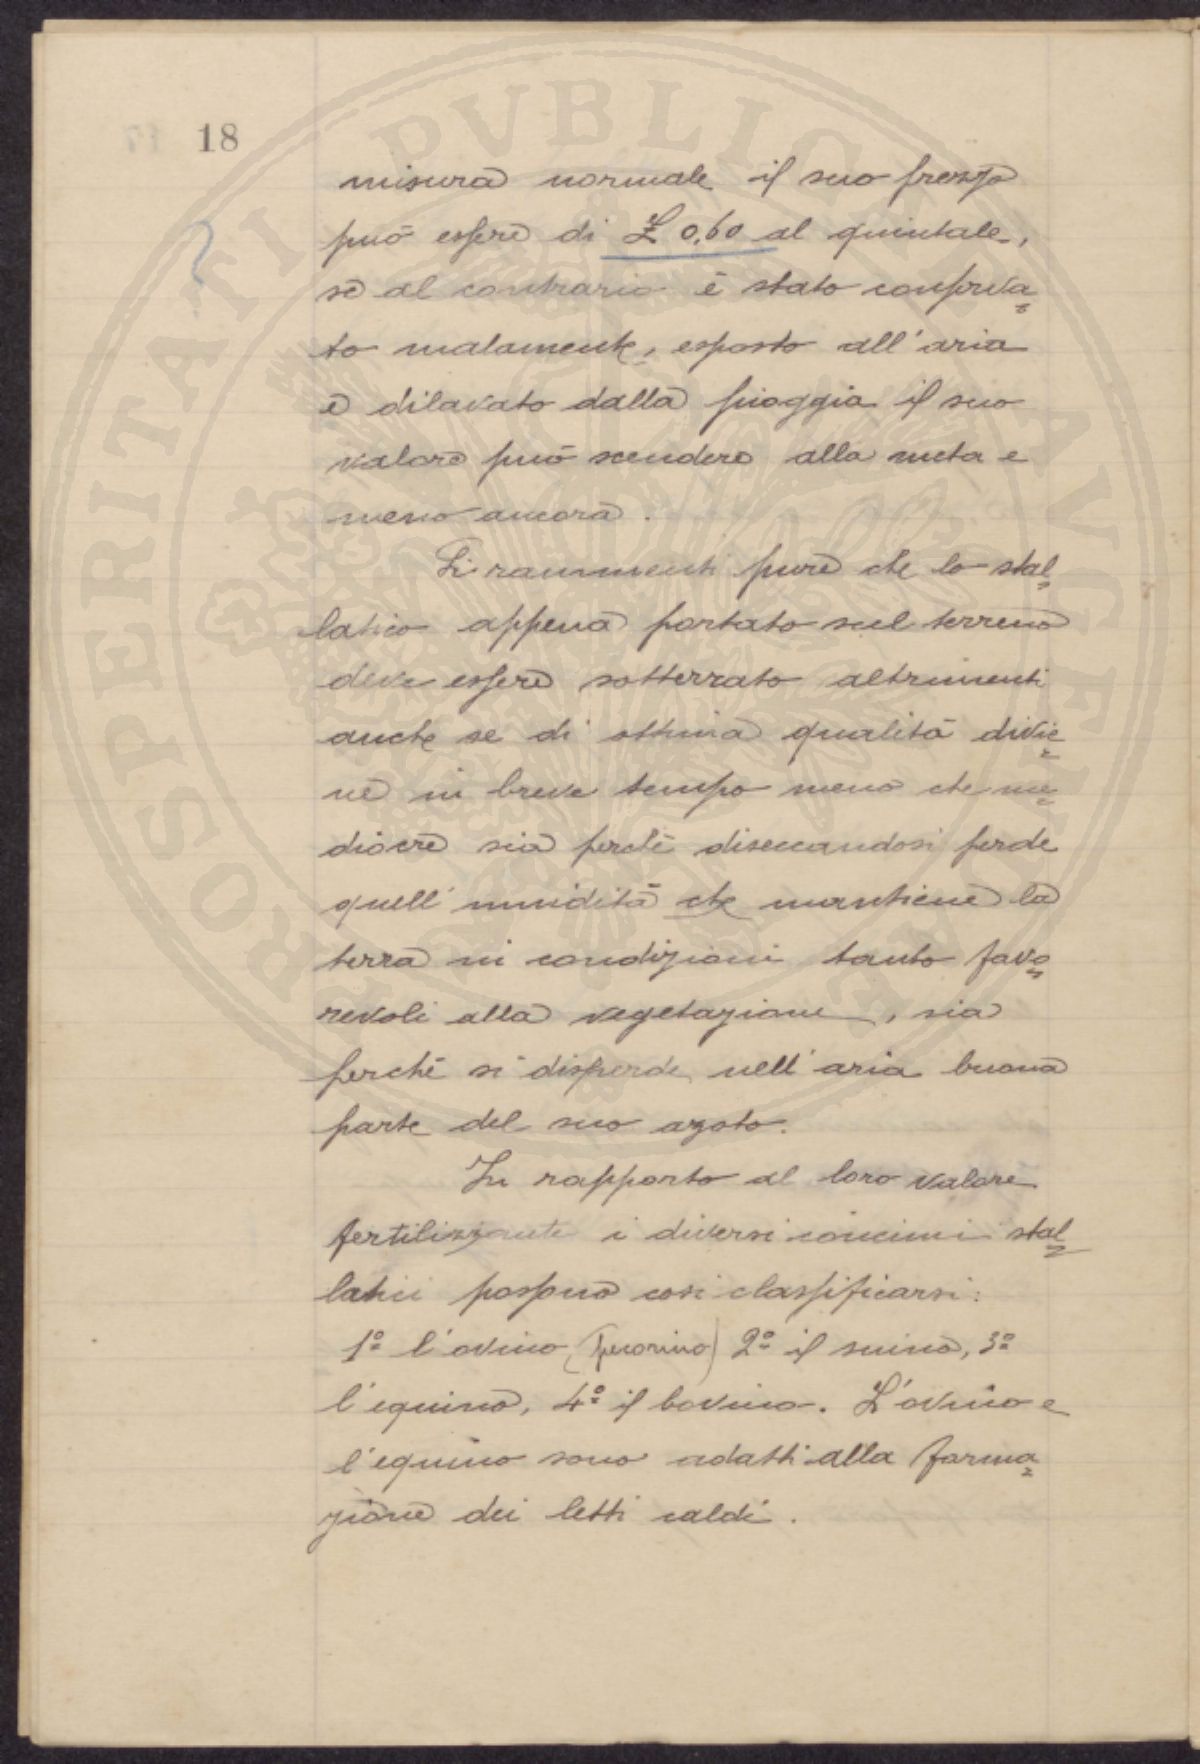 18
misura normale il suo prezzo
può essere di £ 0,60 al quintale,
se al contrario è stato conserva=
to malamente, esposto all'aria
e dilavato dalla pioggia il suo
valore può scendere alla metà e
meno ancora.
Si rammenti pure che lo stal=
latico appena portato sul terreno
deve essere sotterrato altrimenti
anche se di ottima qualità divie=
ne in breve tempo meno che me=
diocre sia perchè diseccandosi perde
quell'umidità che mantiene la
terra in condizioni tanto favo=
revoli alla vegetazione, sia
perchè si disperde nell'aria buona
parte del suo azoto.
In rapporto al loro valore
fertilizzante i diversi concimi stal=
latici possono così classificarsi:
1º l'ovino (pecorino) 2º il suino, 3º
l'equino, 4º il bovino. L'ovino e
l'equino sono adatti alla forma=
zione dei letti caldi.
PROSPERITATI PVBLICAE AVGENDAE